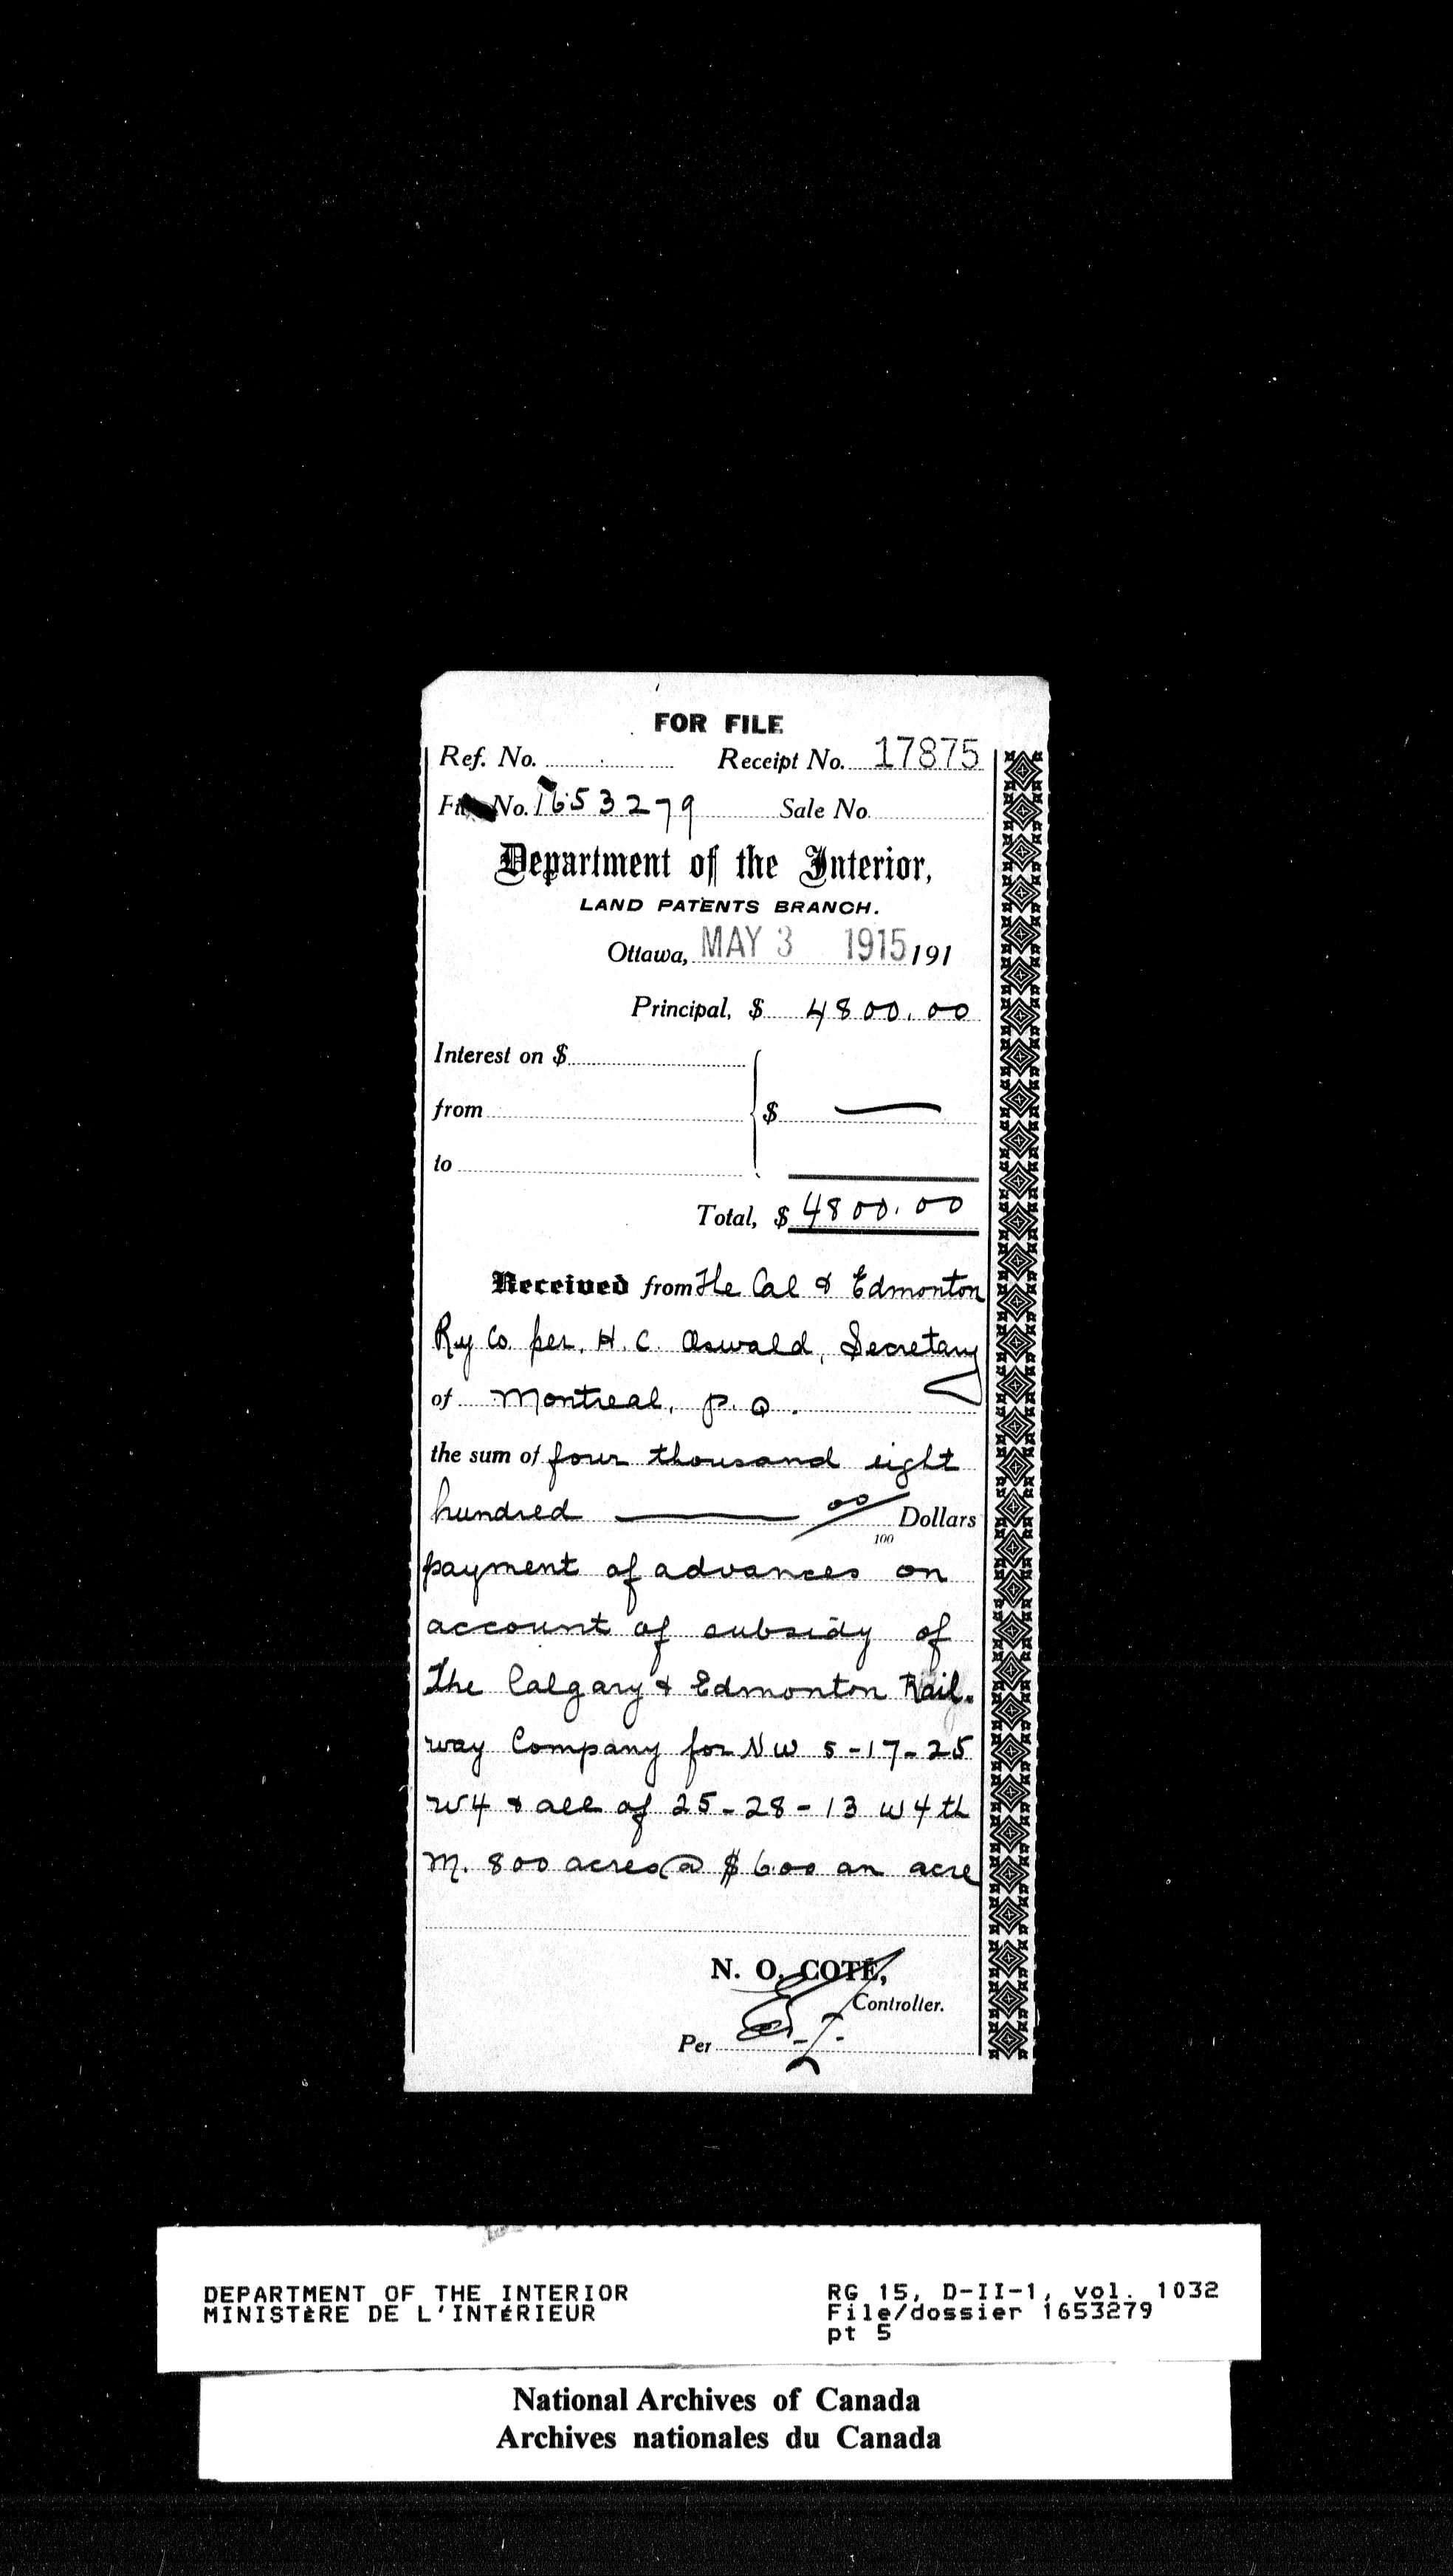 FOR FILE
Ref. No. Receipt No. 17875
No. 1653279 Sale No.
Department of the Interior,
LAND PATENTS BRANCH.
Ottawa, MAY 3 1915 191
Principal, $ 4800.00
Interest on $
from $ —
to
Total, $ 4800.00
Received from The Cal & Edmonton
Ry Co. per. H. C. Oswald, Secretary
of Montreal, P. Q.
the sum of four thousand eight
hundred — 00/100 Dollars
payment of advances on
account of subsidy of
The Calgary & Edmonton Rail-
way Company for NW 5-17-25
W4 & all of 25-28-13 W4th
M. 800 acres @ $6 00 an acre
N. O. COTÉ,
Controller.
Per
DEPARTMENT OF THE INTERIOR RG 15, D-II-1, vol. 1032
MINISTÈRE DE L'INTÉRIEUR File/dossier 1653279
pt 5
National Archives of Canada
Archives nationales du Canada